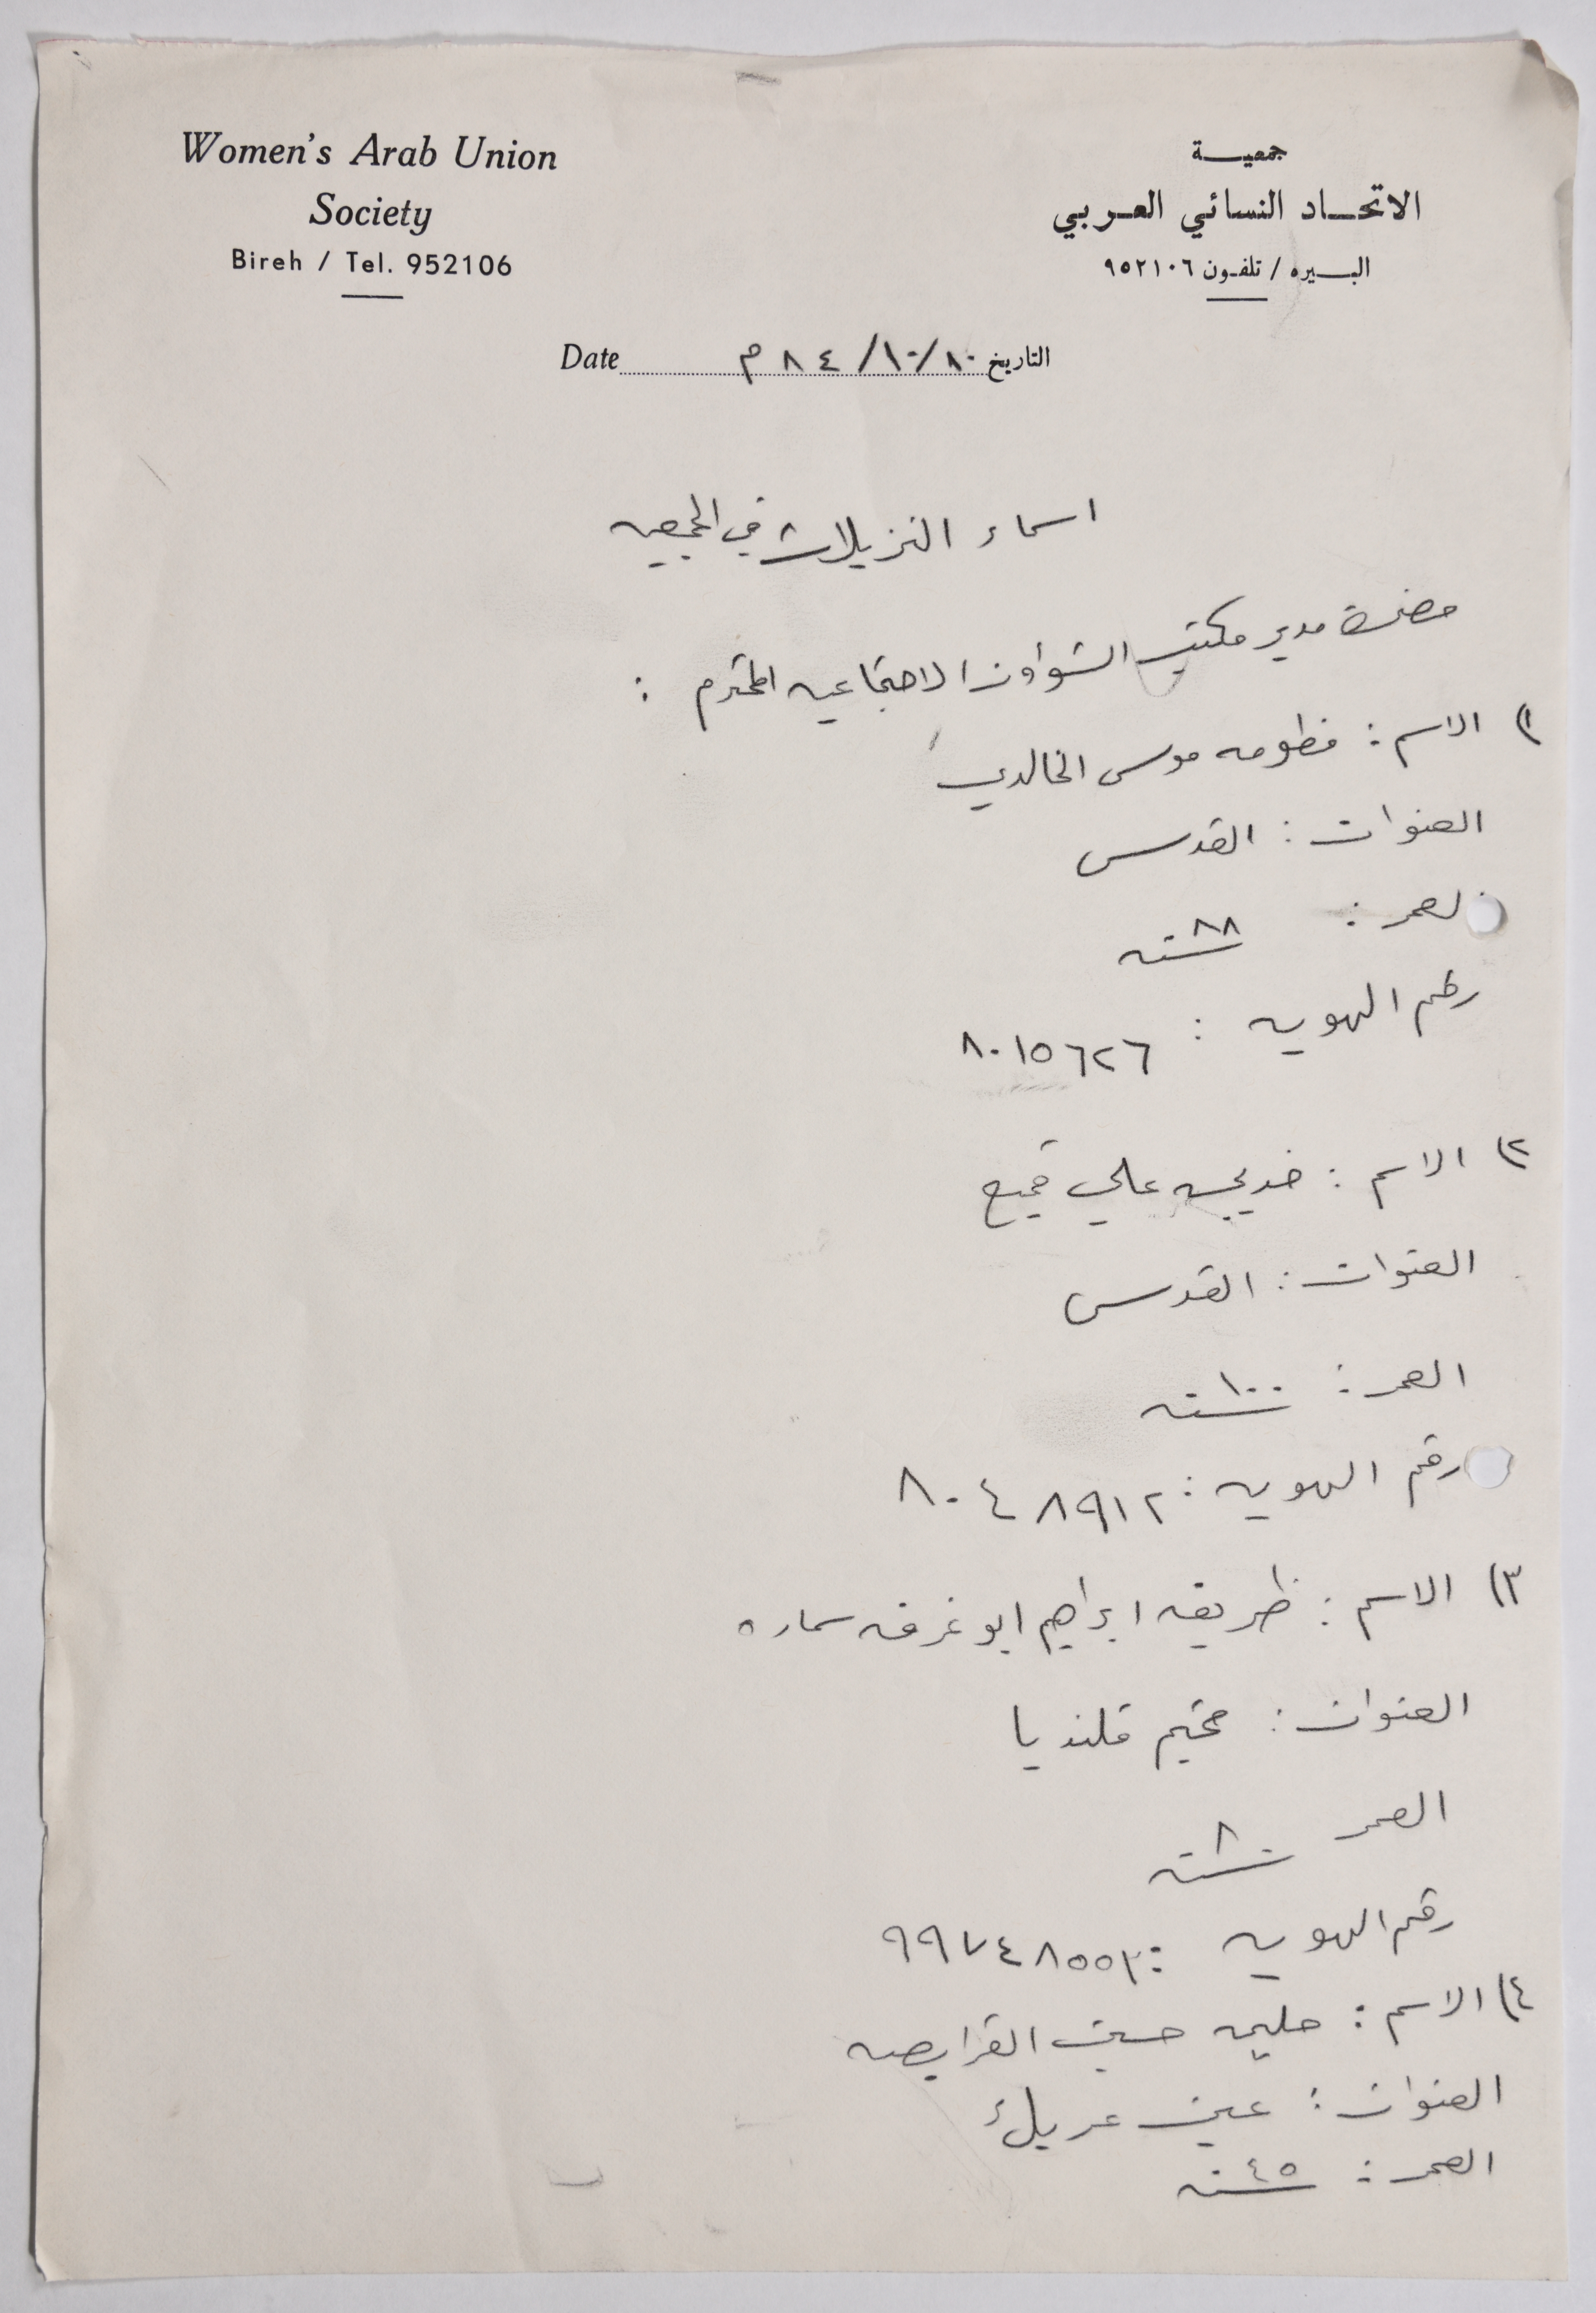 Women's Arab Union
Society
Bireh / Tel. 952106
جمعية
الاتحاد النسائي العربي
البيره / تلفون ٩٥٢١٠٦
التاريخ ٨٠/١٠/٨٤ م Date
اسماء النزيلات في الجمعيه
حضرة مدير مكتب الشؤون الاجتماعيه المحترم :
١) الاسم : فطومه موسى الخالدي
العنوان : القدس
العمر : ٨٨ سنه
رقم الهويه : ٨٠١٥٦٢٦
٢) الاسم : خديجه علي قميع
العنوان : القدس
العمر : ١٠٠ سنه
رقم الهويه : ٨٠٤٨٩١٢
٣) الاسم : ظريفه ابراهيم ابو غرفه سماره
العنوان : مخيم قلنديا
العمر ٨٠ سنه
رقم الهويه : ٩٩٧٤٨٥٥٢
٤) الاسم : حليمه حسين القرايصه
العنوان : عين عريك
العمر : ٤٥ سنه